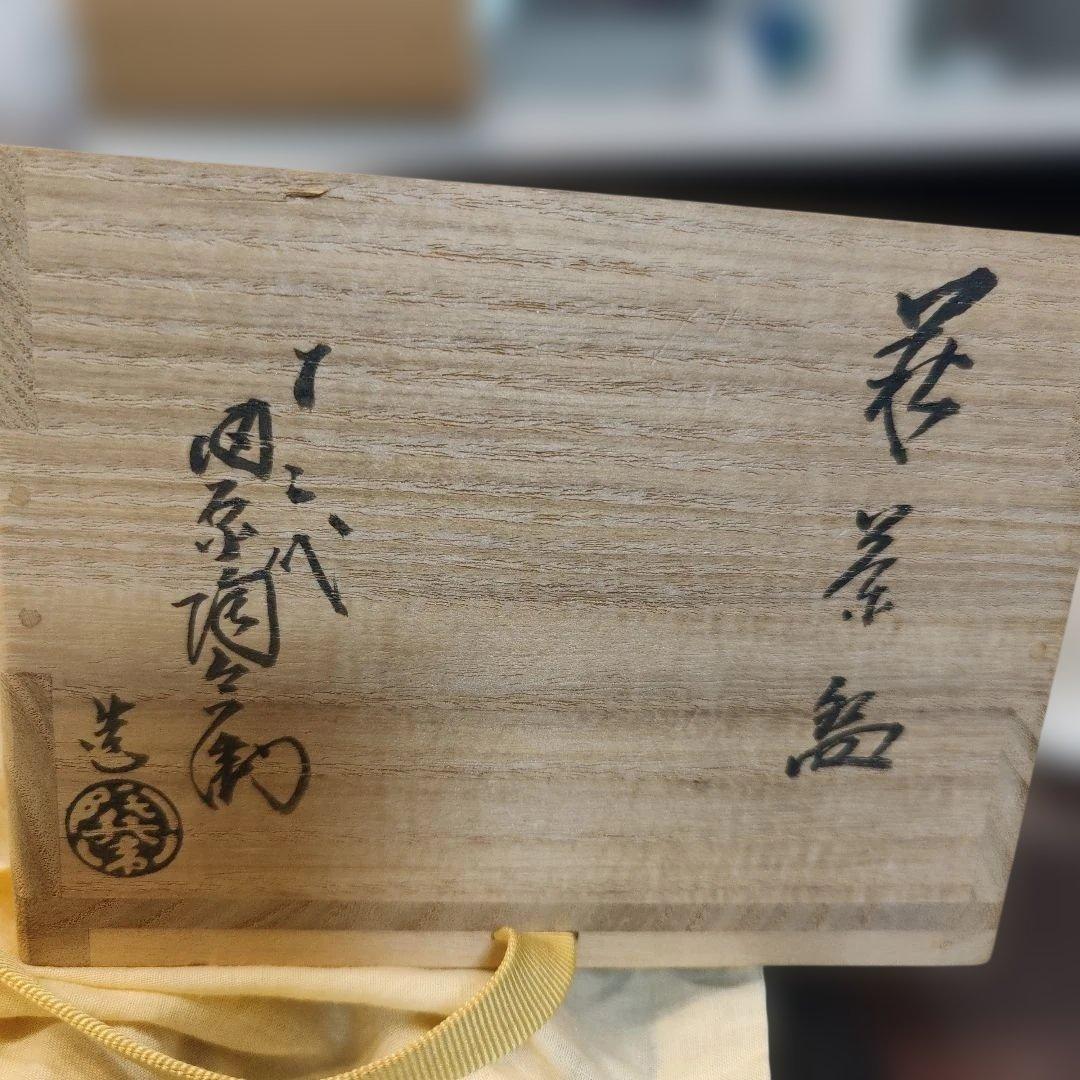 萩茶盌
十三代
田原陶兵衛
造